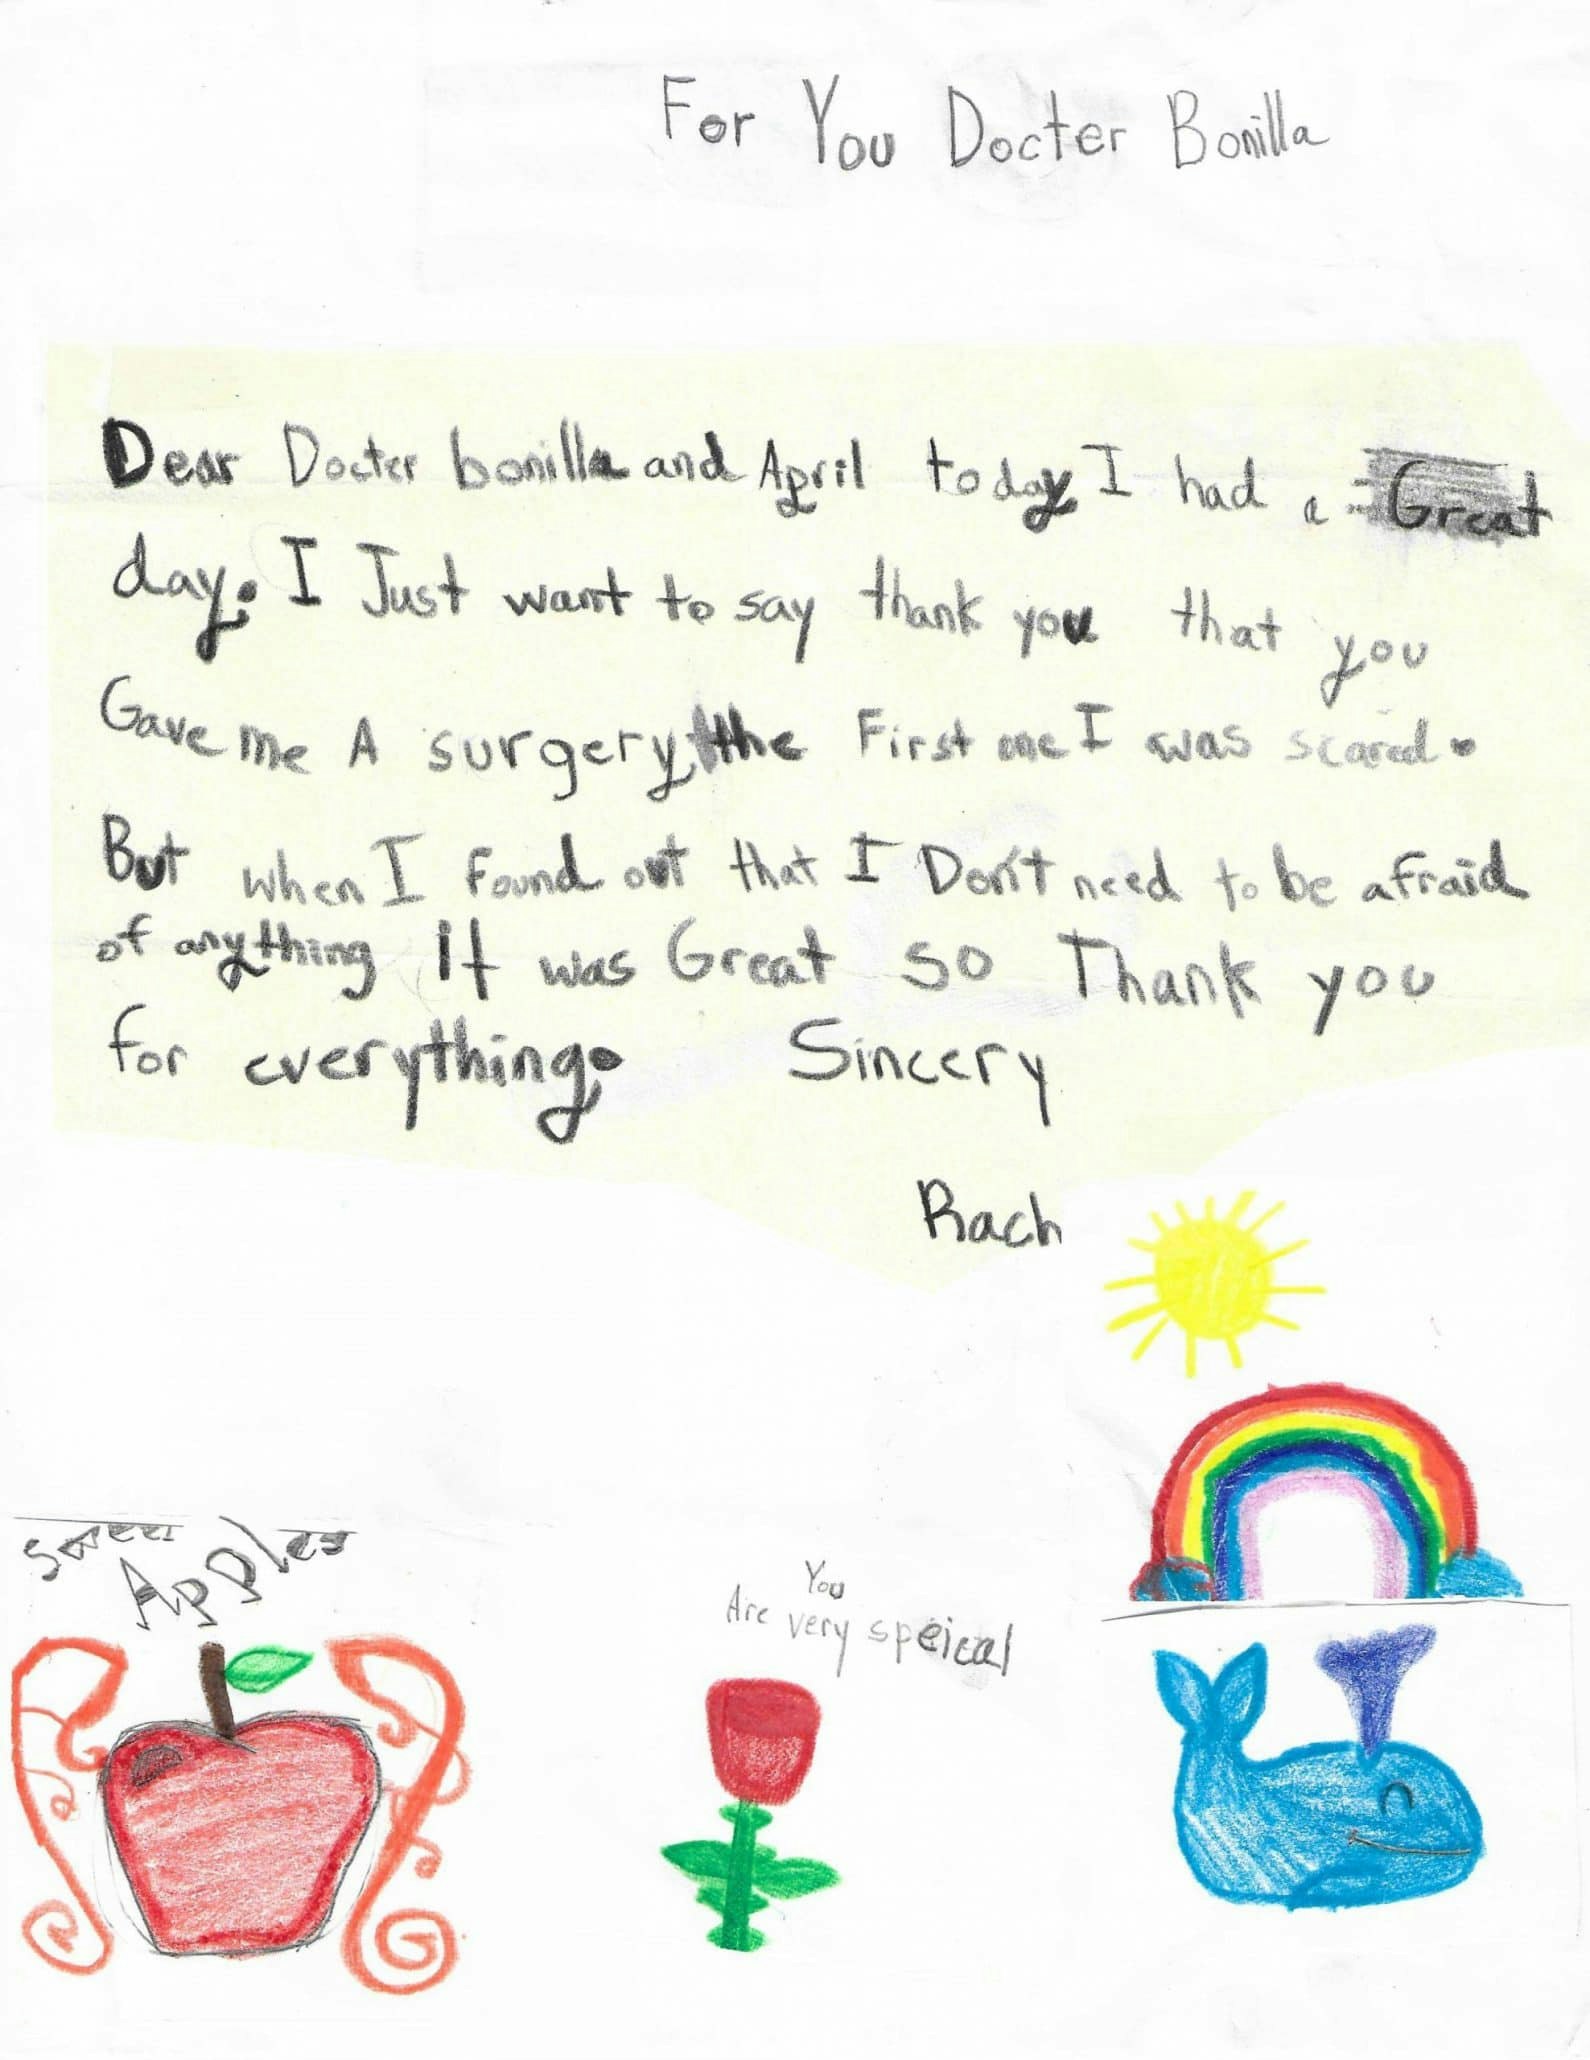 For You Docter Bonilla
Dear Docter bonilla and April today I had a Great
day. I Just want to say thank you that you
Gave me A surgery the First one I was scared.
But when I found out that I Don't need to be afraid
of anything it was Great so Thank you
for everything. Sincery
Rach
Sweet
Apples
You
Are very speical